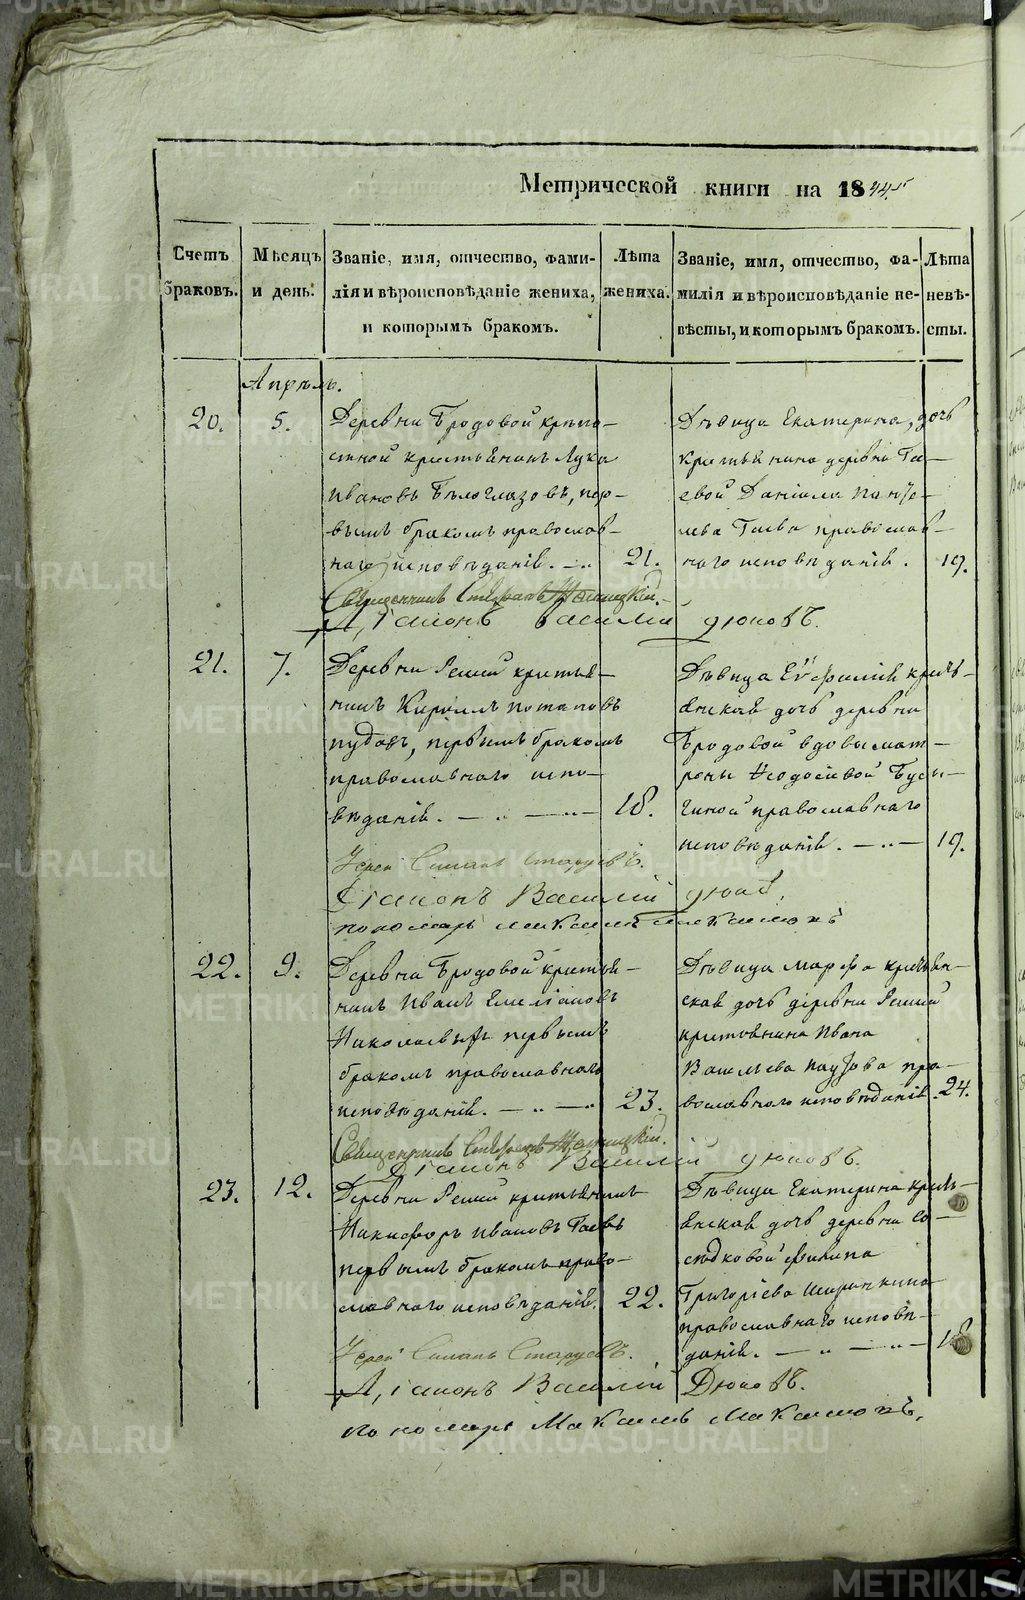 Метрической книги на 1844
Счетъ браковъ.
Мѣсяцъ и день.
Званіе, имя, отчество, фами-
лія и вѣроисповѣданіе жениха,
и которымъ бракомъ.
Лѣта
жениха.
Званіе, имя, отчество, фа-
милія и вѣроисповѣданіе не-
вѣсты, и которымъ бракомъ.
Лѣта
невѣ-
сты.
Апрѣль.
20.
5.
Деревни Бродовой крѣпо-
стной крестьянинъ Лука
Ивановъ Бѣлоглазовъ, пер-
вымъ бракомъ православ-
наго исповѣданія.
21.
Дѣвица Екатерина, дочь
крестьянина деревни Га-
евой Даніила Панте-
лева Гаева православ-
наго исповѣданія.
19.
Священникъ Стефанъ
Діаконъ Василій Дюковъ.
21.
7.
Деревни крестья-
нинъ Кириллъ Потаповъ
первымъ бракомъ
православнаго испо-
вѣданія.
18.
Дѣвица Евфимія кресть-
янская дочь деревни
Бродовой вдовы Мат-
роны Ѳеодосіевой Бусы-
гиной православнаго
исповѣданія.
19.
Іерей
Діаконъ Василій Дюковъ,
пономарь Максимъ
22.
9.
Деревни Бродовой крестья-
нинъ Иванъ Емеліановъ
Николаевыхъ первымъ
бракомъ православнаго
исповѣданія.
23.
Дѣвица Марфа крестьян-
ская дочь деревни
крестьянина Ивана
Васильева пра-
вославнаго исповѣданія.
24.
Священникъ Стефанъ
Діаконъ Василій Дюковъ.
23.
12.
Деревни крестьянинъ
Никифоръ Ивановъ Гаевъ
первымъ бракомъ право-
славнаго исповѣданія.
22.
Дѣвица Екатерина кресть-
янская дочь деревни Со-
сѣдковой Филипа
Григоріева Ширинкина
православнаго исповѣ-
данія.
Іерей
Діаконъ Василій Дюковъ.
пономарь Максимъ
METRIKI.GASO-URAL.RU